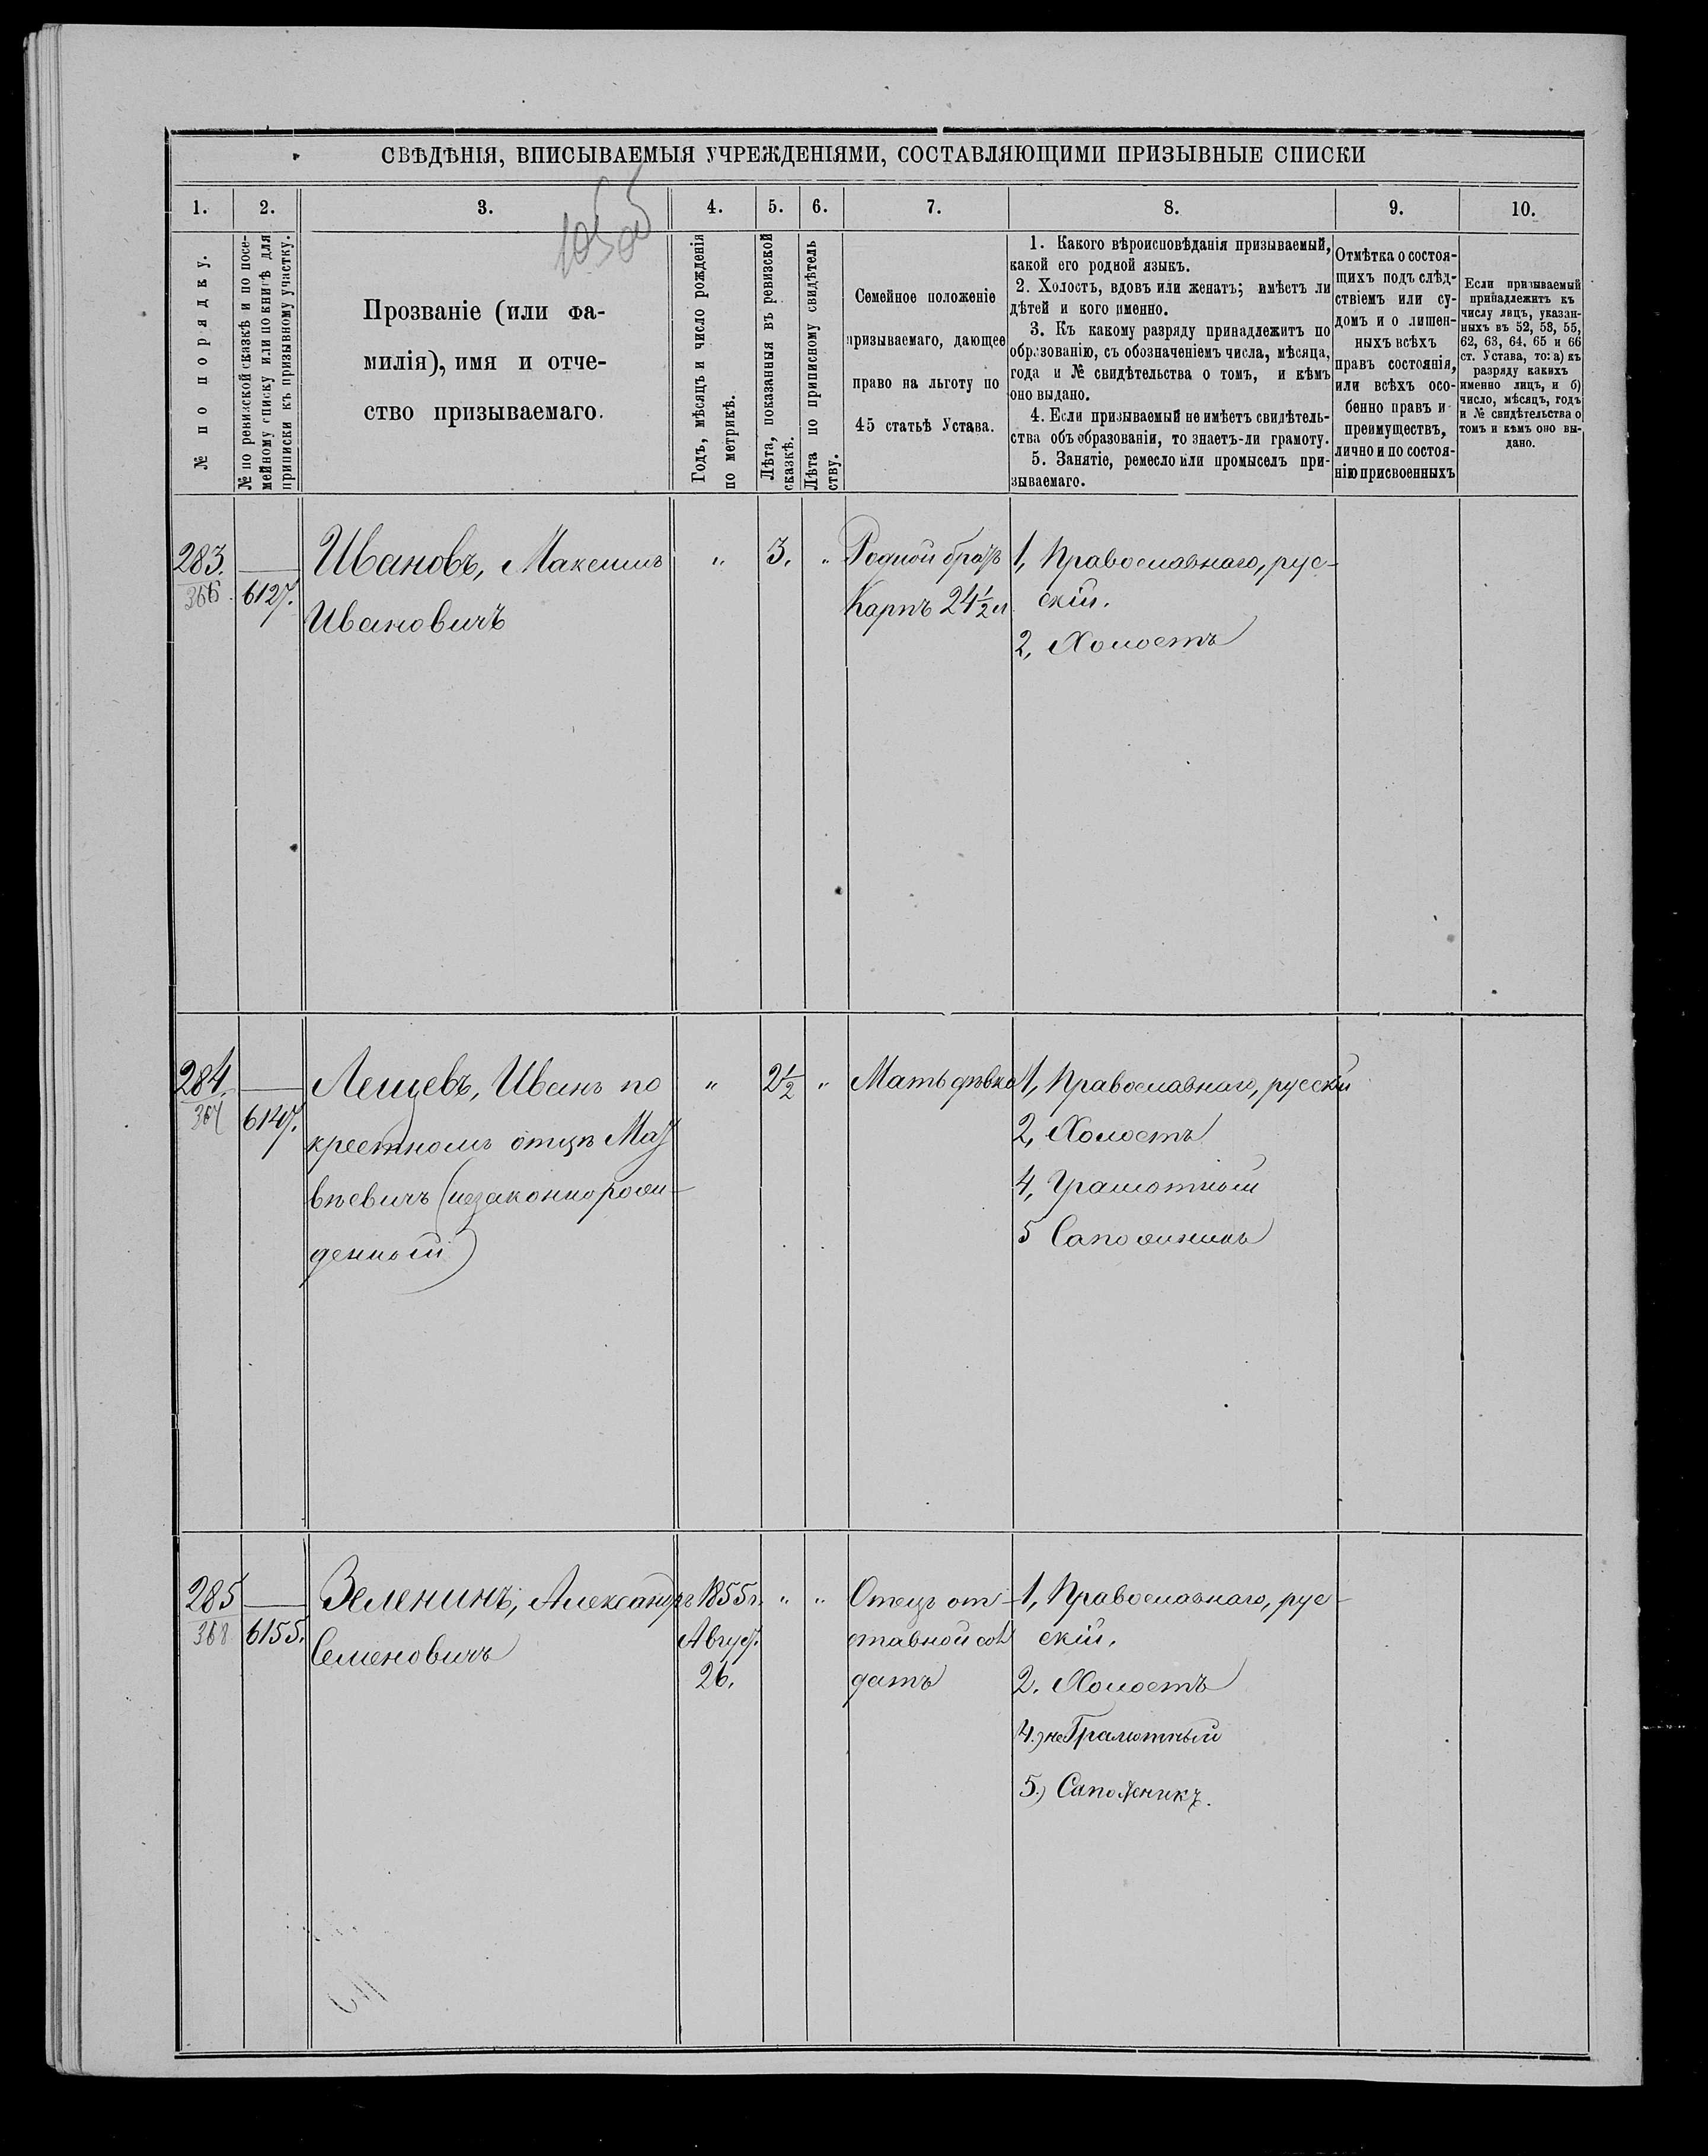 СВѢДѢНІЯ, ВПИСЫВАЕМЫЯ УЧРЕЖДЕНІЯМИ, СОСТАВЛЯЮЩИМИ ПРИЗЫВНЫЕ СПИСКИ
1.
№ по порядку.
2.
№ по ревизской сказкѣ и по посе-
мейному списку или по книгѣ для
приписки къ призывному участку.
3.
Прозваніе (или фа-
милія), имя и отче-
ство призываемаго.
4.
Годъ, мѣсяцъ и число рожденія
по метрикѣ.
5.
Лѣта, показанныя въ ревизской
сказкѣ.
6.
Лѣта по приписному свидѣтель
ству.
7.
Семейное положеніе
призываемаго, дающее
право на льготу по
45 статьѣ Устава.
8.
1. Какого вѣроисповѣданія призываемый,
какой его родной языкъ.
2. Холостъ, вдовъ или женатъ; имѣетъ ли
дѣтей и кого именно.
3. Къ какому разряду принадлежитъ по
образованію, съ обозначеніемъ числа, мѣсяца,
года и № свидѣтельства о томъ, и кѣмъ
оно выдано.
4. Если призываемый не имѣетъ свидѣтель-
ства объ образованіи, то знаетъ-ли грамоту.
5. Занятіе, ремесло или промыселъ при-
зываемаго.
9.
Отмѣтка о состоя-
щихъ подъ слѣд-
ствіемъ или су-
домъ и о лишен-
ныхъ всѣхъ
правъ состоянія,
или всѣхъ осо-
бенно правъ и
преимуществъ,
лично и по состоя-
нію присвоенныхъ
10.
Если призываемый
принадлежитъ къ
числу лицъ, указан-
ныхъ въ 52, 53, 55,
62, 63, 64, 65 и 66
ст. Устава, то: а) къ
разряду какихъ
именно лицъ, и б)
число, мѣсяцъ, годъ
и № свидѣтельства о
томъ и кѣмъ оно вы-
дано.
283.
366.
6127.
Ивановъ, Максимъ
Ивановичъ
"
3.
"
Родной братъ
Карпъ 24½ л.
1, Православнаго, рус-
скій.
2, Холостъ
284.
367
6147.
Лещевъ, Иванъ по
крестномъ отцѣ Мат
вѣевичъ (незаконнорож-
денный)
"
2½
"
Мать дѣвка
1, Православнаго, русскій
2, Холостъ
4, Грамотный
5 Сапожникъ
285
368
6155.
Зеленинъ, Александръ
Семеновичъ
1855 г.
Август.
26.
"
"
Отецъ от-
ставной сол
датъ
1, Православнаго, рус-
скій.
2. Холостъ
4.) не Грамотный
5.) Сапожникъ.